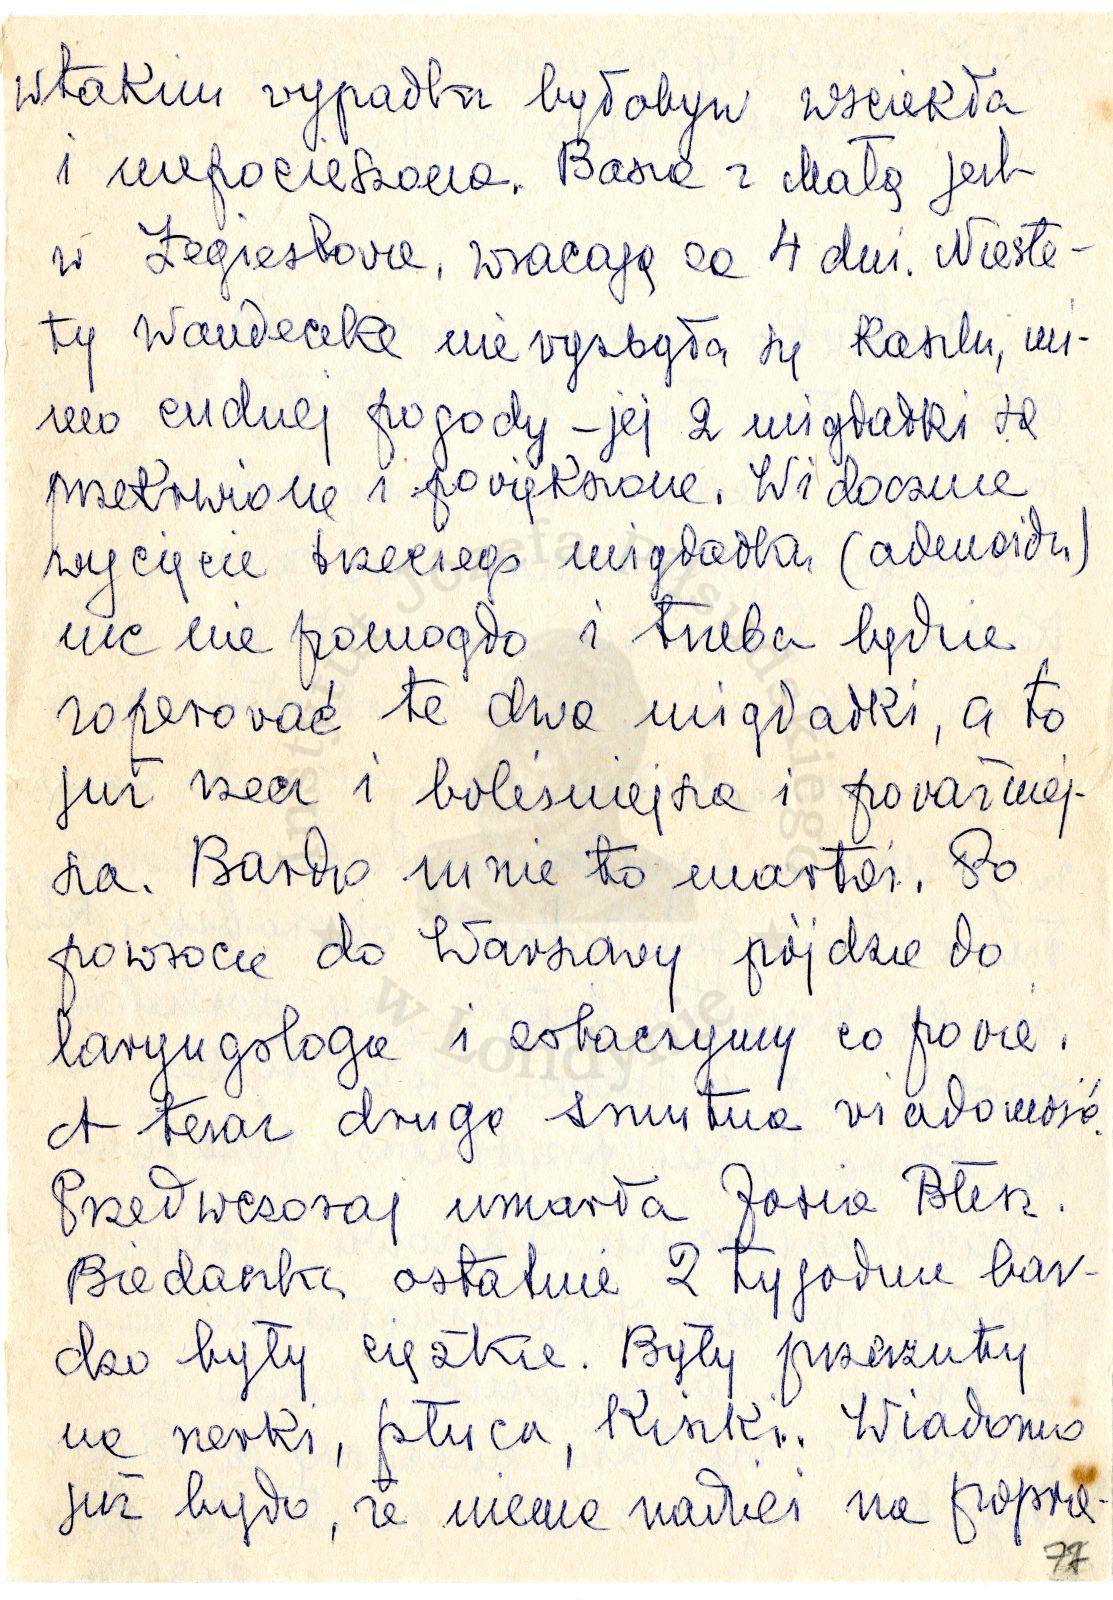 w takim wypadku byłobym wściekła
i niepocieszona. Basia z Małą jest
w Żegiestowie, wracają za 4 dni. Nieste-
ty Wandeczka nie wyzbyła się kaszlu, mi-
mo cudnej pogody – jej 2 migdałki są
przekrwione i powiększone. Widocznie
wycięcie trzeciego migdałka (adenoidu)
nic nie pomogło i trzeba będzie
zoperować te dwa migdałki, a to
już rzecz i boleśniejsza i poważniej-
sza. Bardzo mnie to martwi. Po
powrocie do Warszawy pójdzie do
laryngologa i zobaczymy co powie.
A teraz druga smutna wiadomość.
Przedwczoraj umarła Zosia Błek.
Biedaczka, ostatnie 2 tygodnie bar-
dzo były ciężkie. Były przerzuty
na nerki, płuca, kiszki. Wiadomo
już było, że niema nadziei na popra-
77
Instytut Józefa Piłsudskiego
w Londynie